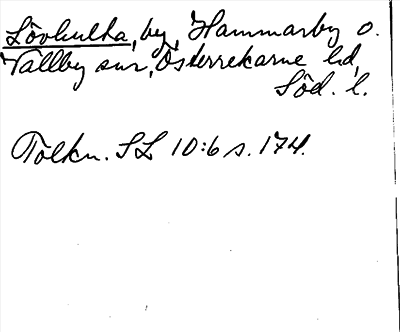 Lövhulta, by, Hammarby o.
Vallby snr, Österrekarne hd,
Söd. l.
Tolkn. SL 10:6 s. 174.